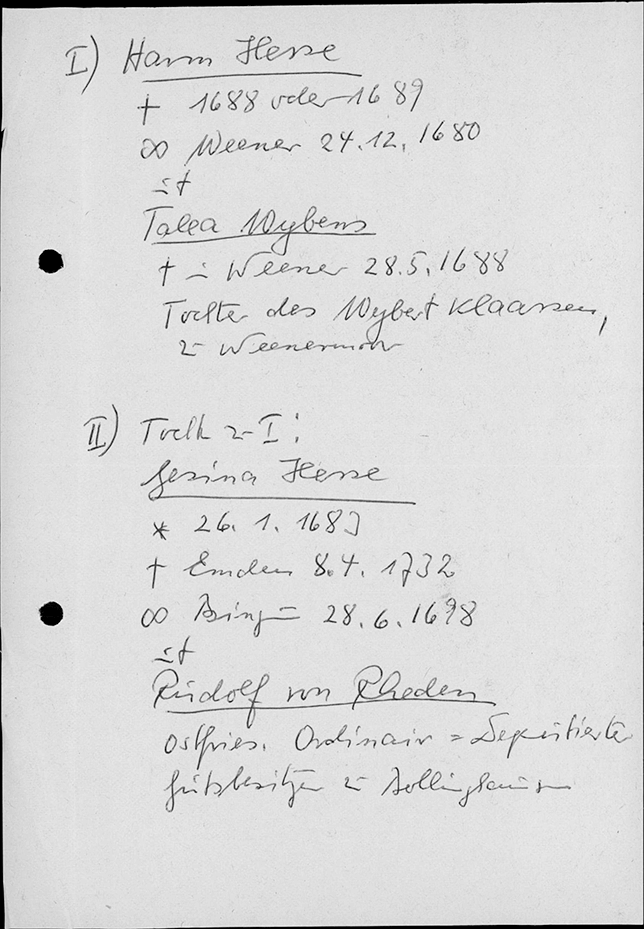 I) Harm Hesse
† 1688 oder 1689
∞ Weener 24.12.1680
mit
Talea Wybens
† in Weener 28.5.1688
Tochter des Wybert Klaassen,
zu Weenermoor
II) Tocht zu I:
Gesina Hesse
* 26.1.1683
† Emden 8.4.1732
∞ Bingum 28.6.1698
mit
Rudolf von Rheden
Ostfries. Ordinair = Deputierter
Gutsbesitzer zu Bollinghausen